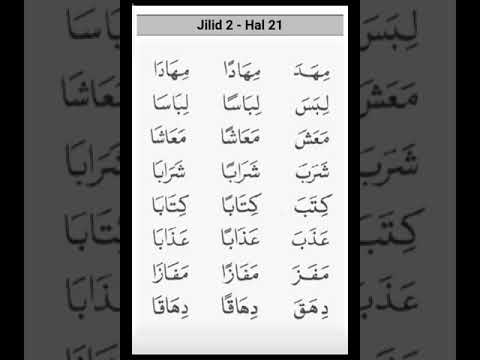 Jilid 2 - Hal 21
مِهَدَ مِهَادًا مِهَادَا
لِبَسَ لِبَاسًا لِبَاسَا
مَعَشَ مَعَاشًا مَعَاشَا
شَرَبَ شَرَابًا شَرَابَا
كِتَبَ كِتَابًا كِتَابَا
عَذَبَ عَذَابًا عَذَابَا
مَفَزَ مَفَازًا مَفَازَا
دِهَقَ دِهَاقًا دِهَاقَا